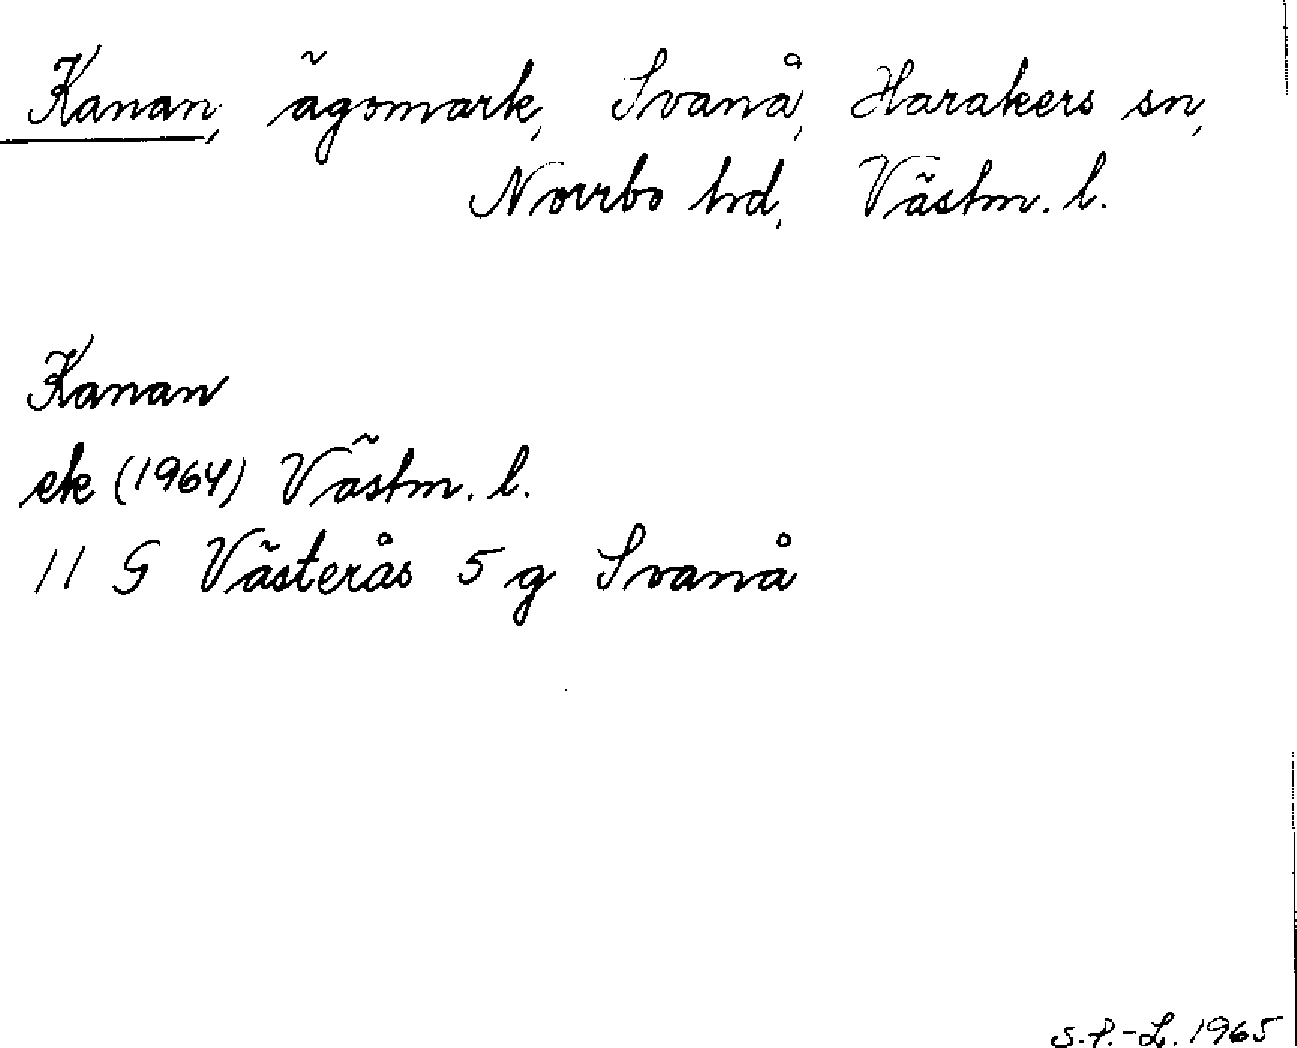 Kanan, ägomark, Svanå, Harakers sn,
Norrbo hd, Västm. l.
Kanan
ek (1964) Västm. l.
11 G Västerås 5 g Svanå
S.P.-L. 1965